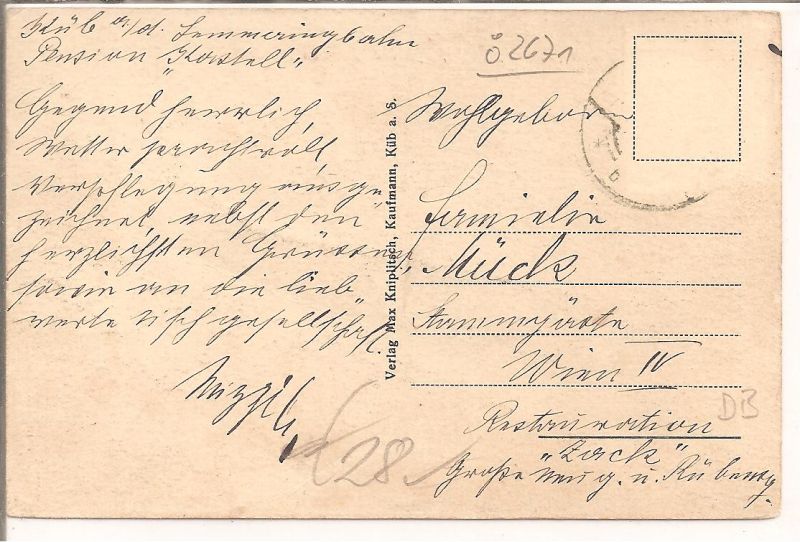 Küb a/d. Semmeringbahn
Pension "Kastell".
Gegend herrlich,
Wetter prachtvoll,
Verpflegung ausge-
zeichnet, nebst den
herzlichsten Grüssen,
sowie an die lieb
werte Tischgesellschaft.
Mizzi
Verlag Max Kniplitsch, Kaufmann, Küb a. S.
Ö 2671
Wohlgeboren
Familie
Mück
Stammgäste
Wien IV
Restauration
"Zack"
Große Neug. u.
DB
28